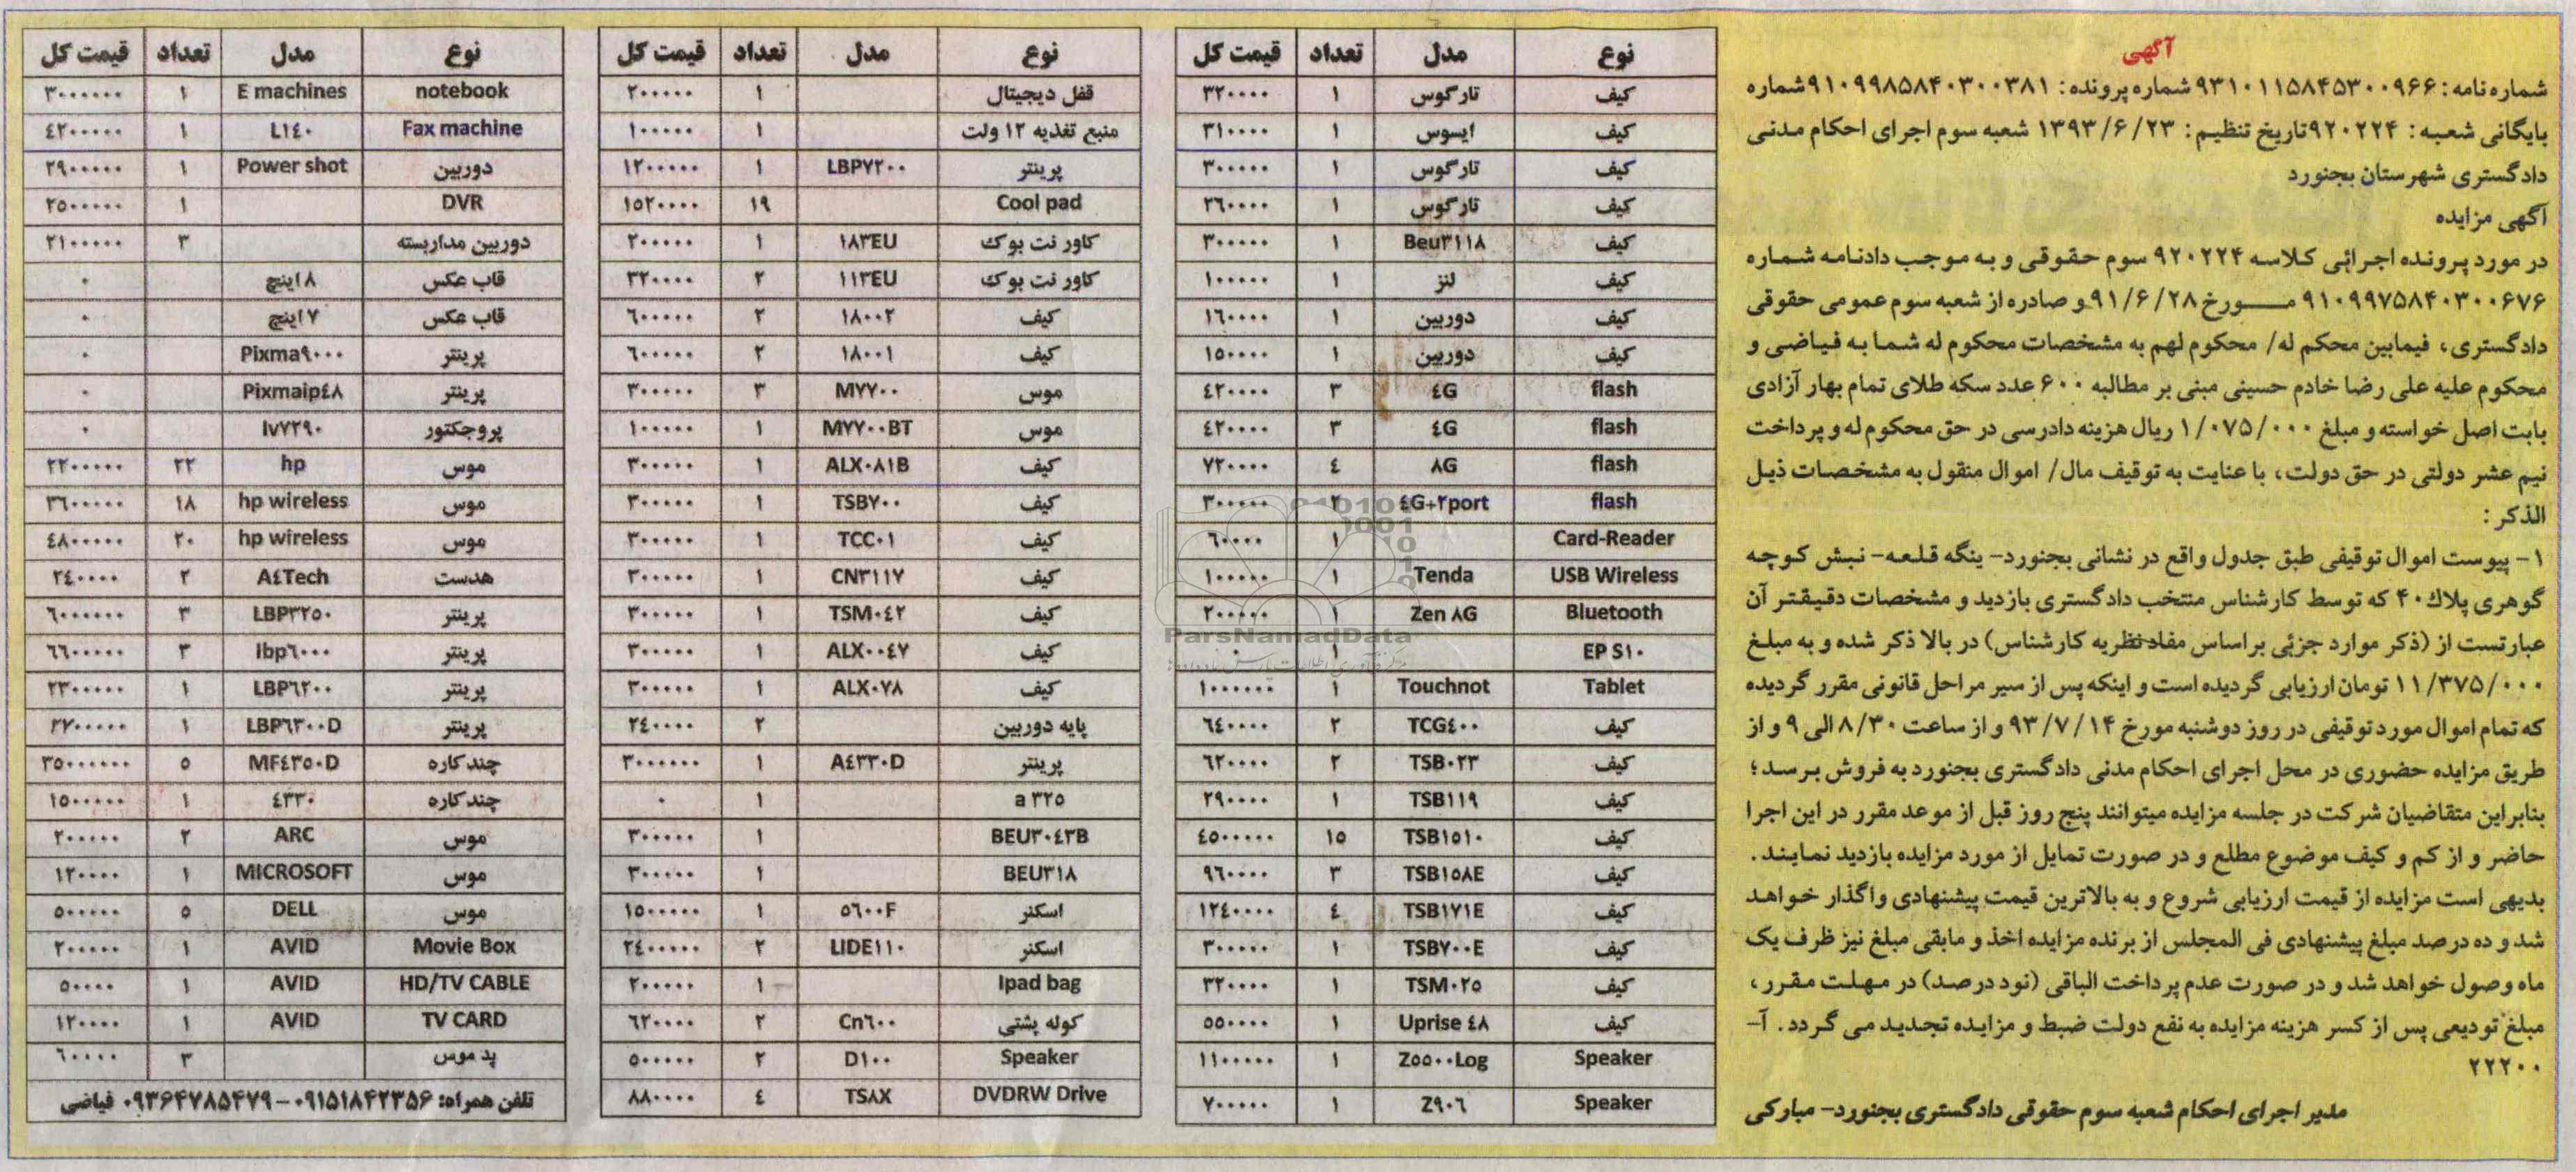 آگهی
شماره نامه: ۹۳۱۰۱۱۵۸۴۵۳۰۰۹۶۶ شماره پرونده: ۹۱۰۹۹۸۵۸۴۰۳۰۰۳۸۱ شماره
بایگانی شعبه: ۹۲۰۲۲۴ تاریخ تنظیم: ۱۳۹۳/۶/۲۳ شعبه سوم اجرای احکام مدنی
دادگستری شهرستان بجنورد
آگهی مزایده
در مورد پرونده اجرائی کلاسه ۹۲۰۲۲۴ سوم حقوقی و به موجب دادنامه شماره
۹۱۰۹۹۷۵۸۴۰۳۰۰۶۷۶ مورخ ۹۱/۶/۲۸ و صادره از شعبه سوم عمومی حقوقی
دادگستری، فیمابین محکم له/ محکوم لهم به مشخصات محکوم له شما به فیاضی و
محکوم علیه علی رضا خادم حسینی مبنی بر مطالبه ۶۰۰ عدد سکه طلای تمام بهار آزادی
بابت اصل خواسته و مبلغ ۱/۰۷۵/۰۰۰ ریال هزینه دادرسی در حق محکوم له و پرداخت
نیم عشر دولتی در حق دولت، با عنایت به توقیف مال/ اموال منقول به مشخصات ذیل
الذکر:
۱- پیوست اموال توقیفی طبق جدول واقع در نشانی بجنورد- ینگه قلعه- نبش کوچه
گوهری پلاک ۴۰ که توسط کارشناس منتخب دادگستری بازدید و مشخصات دقیقتر آن
عبارتست از (ذکر موارد جزئی براساس مفاد نظریه کارشناس) در بالا ذکر شده و به مبلغ
۱۱/۳۷۵/۰۰۰ تومان ارزیابی گردیده است و اینکه پس از سیر مراحل قانونی مقرر گردیده
که تمام اموال مورد توقیفی در روز دوشنبه مورخ ۹۳/۷/۱۴ و از ساعت ۸/۳۰ الی ۹ و از
طریق مزایده حضوری در محل اجرای احکام مدنی دادگستری بجنورد به فروش برسد؛
بنابراین متقاضیان شرکت در جلسه مزایده میتوانند پنج روز قبل از موعد مقرر در این اجرا
حاضر و از کم و کیف موضوع مطلع و در صورت تمایل از مورد مزایده بازدید نمایند.
بدیهی است مزایده از قیمت ارزیابی شروع و به بالاترین قیمت پیشنهادی واگذار خواهد
شد و ده درصد مبلغ پیشنهادی فی المجلس از برنده مزایده اخذ و مابقی مبلغ نیز ظرف یک
ماه وصول خواهد شد و در صورت عدم پرداخت الباقی (نود درصد) در مهلت مقرر،
مبلغ تودیعی پس از کسر هزینه مزایده به نفع دولت ضبط و مزایده تجدید می گردد. آ-
۲۲۲۰۰
مدیر اجرای احکام شعبه سوم حقوقی دادگستری بجنورد- مبارکی
نوع مدل تعداد قیمت کل
کیف تارگوس ۱ ۳۲۰۰۰۰
کیف ایسوس ۱ ۳۱۰۰۰۰
کیف تارگوس ۱ ۳۰۰۰۰۰
کیف تارگوس ۱ ۲۶۰۰۰۰
کیف Beu۳۱۱۸ ۱ ۳۰۰۰۰۰
کیف لنز ۱ ۱۰۰۰۰۰
کیف دوربین ۱ ۱۶۰۰۰۰
کیف دوربین ۱ ۱۵۰۰۰۰
flash ٤G ۳ ٤۲۰۰۰۰
flash ٤G ۳ ٤۲۰۰۰۰
flash ۸G ٤ ۷۲۰۰۰۰
flash ٤G+۲port ۲ ۳۰۰۰۰۰
Card-Reader ۱ ٦۰۰۰۰
USB Wireless Tenda ۱ ۱۰۰۰۰۰
Bluetooth Zen ۸G ۱ ۲۰۰۰۰۰
EP S۱۰ ۱ ۰
Tablet Touchnot ۱ ۱۰۰۰۰۰۰
کیف TCG٤۰۰ ۲ ٦٤۰۰۰۰
کیف TSB۰۲۳ ۲ ٦۲۰۰۰۰
کیف TSB۱۱۹ ۱ ۲۹۰۰۰۰
کیف TSB۱۵۱۰ ۱۵ ٤۵۰۰۰۰۰
کیف TSB۱۵۸E ۳ ۹٦۰۰۰۰
کیف TSB۱۷۱E ٤ ۱۲٤۰۰۰۰
کیف TSB۷۰۰E ۱ ۳۰۰۰۰۰
کیف TSM۰۲۵ ۱ ۳۲۰۰۰۰
کیف Uprise ٤۸ ۱ ۵۵۰۰۰۰
Speaker Z۵۵۰۰Log ۱ ۱۱۰۰۰۰۰
Speaker Z۹۰٦ ۱ ۷۰۰۰۰۰
نوع مدل تعداد قیمت کل
قفل دیجیتال ۱ ۲۰۰۰۰۰
منبع تغذیه ۱۲ ولت ۱ ۱۰۰۰۰۰
پرینتر LBP۷۲۰۰ ۱ ۱۲۰۰۰۰۰
Cool pad ۱۹ ۱۵۲۰۰۰۰
کاور نت بوک ۱۸۳EU ۱ ۲۰۰۰۰۰
کاور نت بوک ۱۱۳EU ۲ ۳۲۰۰۰۰
کیف ۱۸۰۰۲ ۲ ٦۰۰۰۰۰
کیف ۱۸۰۰۱ ۲ ٦۰۰۰۰۰
موس M۷۷۰۰ ۳ ۳۰۰۰۰۰
موس M۷۷۰۰BT ۱ ۱۰۰۰۰۰
کیف ALX۰۸۱B ۱ ۳۰۰۰۰۰
کیف TSB۷۰۰ ۱ ۳۰۰۰۰۰
کیف TCC۰۱ ۱ ۳۰۰۰۰۰
کیف CN۳۱۱۷ ۱ ۳۰۰۰۰۰
کیف TSM۰٤۲ ۱ ۳۰۰۰۰۰
کیف ALX۰۰٤۷ ۱ ۳۰۰۰۰۰
کیف ALX۰۷۸ ۱ ۳۰۰۰۰۰
پایه دوربین ۲ ۲٤۰۰۰۰
پرینتر A٤۳۳۰D ۱ ۳۰۰۰۰۰۰
a ۳۲۵ ۱ ۰
BEU۳۰٤۳B ۱ ۳۰۰۰۰۰
BEU۳۱۸ ۱ ۳۰۰۰۰۰
اسکنر ۵٦۰۰F ۱ ۱۵۰۰۰۰۰
اسکنر LIDE۱۱۰ ۲ ۲٤۰۰۰۰۰
Ipad bag ۱ ۲۰۰۰۰۰
کوله پشتی Cn٦۰۰ ۲ ٦۲۰۰۰۰
Speaker D۱۰۰ ۲ ۵۰۰۰۰۰
DVDRW Drive TS۸X ٤ ۸۸۰۰۰۰
نوع مدل تعداد قیمت کل
notebook E machines ۱ ۳۰۰۰۰۰۰
Fax machine L۱٤۰ ۱ ٤۲۰۰۰۰۰
دوربین Power shot ۱ ۲۹۰۰۰۰۰
DVR ۱ ۲۵۰۰۰۰۰
دوربین مداربسته ۳ ۲۱۰۰۰۰۰
قاب عکس ۸ اینچ ۰
قاب عکس ۷ اینچ ۰
پرینتر Pixma۹۰۰۰ ۰
پرینتر Pixmaip٤۸ ۰
پروجکتور lv۷۲۹۰ ۰
موس hp ۲۲ ۲۲۰۰۰۰۰
موس hp wireless ۱۸ ۳٦۰۰۰۰۰
موس hp wireless ۲۰ ٤۸۰۰۰۰۰
هدست A٤Tech ۲ ۲٤۰۰۰۰
پرینتر LBP۳۲۵۰ ۳ ٦۰۰۰۰۰۰
پرینتر lbp٦۰۰۰ ۳ ٦٦۰۰۰۰۰
پرینتر LBP٦۲۰۰ ۱ ۲۳۰۰۰۰۰
پرینتر LBP٦۳۰۰D ۱ ۲۷۰۰۰۰۰
چندکاره MF٤۳۵۰D ۵ ۳۵۰۰۰۰۰۰
چندکاره ٤۳۳۰ ۱ ۱۵۰۰۰۰۰
موس ARC ۲ ۲۰۰۰۰۰
موس MICROSOFT ۱ ۱۲۰۰۰۰
موس DELL ۵ ۵۰۰۰۰۰
Movie Box AVID ۱ ۲۰۰۰۰۰
HD/TV CABLE AVID ۱ ۵۰۰۰۰
TV CARD AVID ۱ ۱۲۰۰۰۰
پد موس ۳ ٦۰۰۰۰
تلفن همراه: ۰۹۱۵۱۸۴۲۳۵۶-۰۹۳۶۴۷۸۵۴۷۹ فیاضی
ParsNamadData